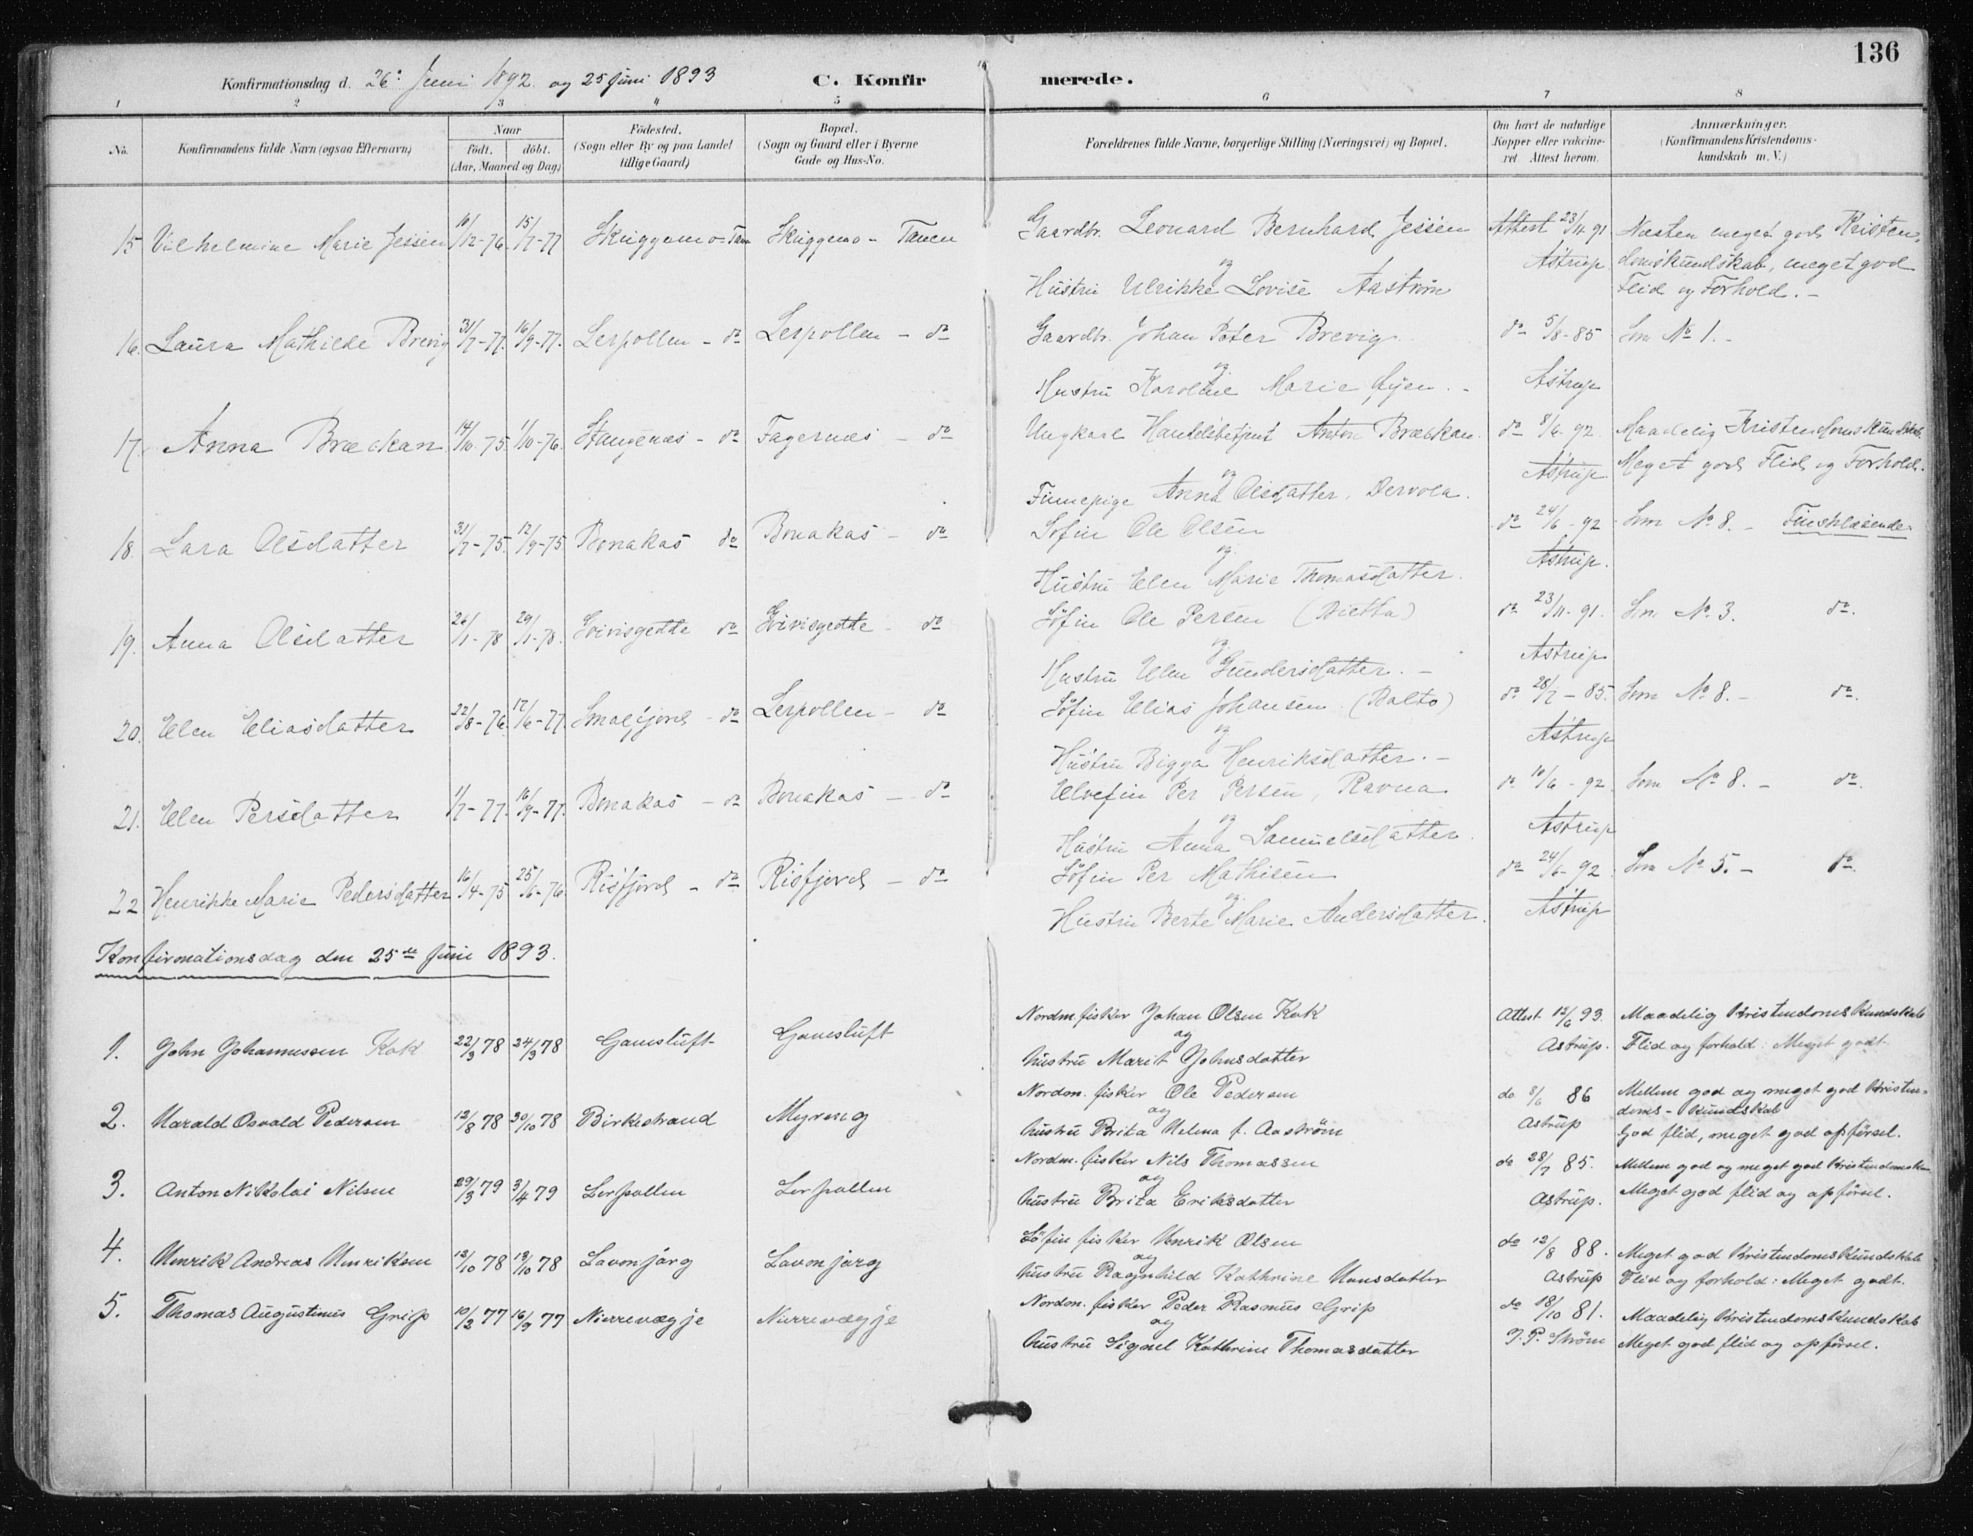 136
Konfirmationsdag d. 26: Juni 1892 og 25 Juni 1893 C. Konfirmerede.
1 2 3 4 5 6 7 8
No. Konfirmandens fulde Navn (ogsaa Efternavn) Naar født. døbt. (Aar, Maaned og Dag) Fødested. (Sogn eller By og paa Landet tillige Gaard) Bopæl. (Sogn og Gaard eller i Byerne Gade og Hus-No. Forældrenes fulde Navne, borgerlige Stilling (Næringsvei) og Bopæl. Om havt de naturlige Kopper eller vakcineret Attest herom. Anmærkninger. (Konfirmandens Kristendomskundskab m. V.)
15 Vilhelmine Marie Jessen 16/12-76 15/7-77 Skiggemo-Tan Skiggemo - Tanen Gaardbr. Leonard Bernhard Jessen Attest 23/11 91 Næsten meget god Kristen-
og Astrup domskundskab, meget god
Hustru Ulrikke Lovise Aastrøm Flid og Forhold. -
16. Laura Mathilde Brevig 31/7-77. 16/9-77. Lerpollen - do Lerpollen - do Gaardbr. Johan Peter Brevig do 5/8-85 Som No 1. -
og Astrup
Hustru Karoline Marie Øyen. -
17. Anna Brækkan 14/10-75 1/10-76. Stangenæs - do Fagernæs - do Ungkarl Handelsbetjent Anton Brækkan do 8/6-92 Maadelig Kristendomskundskab.
og Astrup Meget god Flid og Forhold.
Finnepige Anna Olsdatter, Dervola.
18. Lara Olsdatter 31/7-75. 12/9-75 Bonakas do Bonakas - do Søfin Ole Olsen do 24/6-92 Som No 8. - Finsklæsende.
og Astrup.
Hustru Elen Marie Thomasdatter.
19. Anna Olsdatter 26/1-78 29/1-78. Ivivisgedte do Ivivisgedte - do Søfin Ole Persen (Bietta) do 23/11-91. Som No 3. do.
og Astrup
Hustru Elen Gundersdatter. -
20. Elen Eliasdatter 22/8-76. 17/6-77. Smalfjord - do Lerpollen - do Søfin Elias Johansen (Balto) do 28/7-85. Som No 8. - do.
og Astrup
Hustru Bigga Henriksdatter. -
21. Elen Persdatter 1/7-77. 16/9-77. Bonakas - do Bonakas - do Elvefin Per Persen, Ravna do 10/6-92 Som No 8. - do.
og Astrup
Hustru Anna Samuelsdatter.
22 Henrikke Marie Pedersdatter 16/4-75 25/6-76. Risfjord - do Risfjord - do Søfin Per Mathisen do 24/6-92 Som No 5. - do.
og Astrup
Hustru Berte Marie Andersdatter.
Konfirmationsdag den 25de Juni 1893.
1. John Johannessen Kok 22/3 78 24/3 78 Gamsluft Gamsluft Nordm. fisker Johan Olsen Kok Attest 12/6 93. Maadelig Kristendomskundskab
og Astrup. Flid og forhold: Meget godt.
hustru Marit Johnsdatter
2. Harald Osvald Pedersen 12/8 78 30/10 78 Birkestrand Myreng Nordm. fisker Ole Pedersen do 8/6 86 Mellem god og meget god Kristen-
og Astrup doms-kundskab
hustru Brita Helena f. Aastrøm God flid, meget god opførsel.
3. Anton Nikolai Nilsen 29/3 79 3/4 79 Lerpollen Lerpollen Nordm. fisker Nils Thomassen do 28/7 85. Mellem god og meget god Kristendomskun
og Astrup. Meget god flid og opførsel.
hustru Brita Eriksdatter
4. Henrik Andreas Henriksen 12/10 78 18/10 78 Lavonjarg Lavonjarg Søfin fisker Henrik Olsen do 12/8 88. Meget god Kristendomskundskab
og Astrup Flid og forhold: Meget godt.
hustru Ragnhild Kathrine Hansdatter
5. Thomas Augustinus Grip 10/2 77 16/9 77 Nierrevægje Nierrevægje Nordm. fisker Peder Rasmus Grip do 18/10 81. Maadelig Kristendomskundskab
og J. P. Strøm Meget god flid og opførsel.
hustru Signel Kathrine Thomasdatter